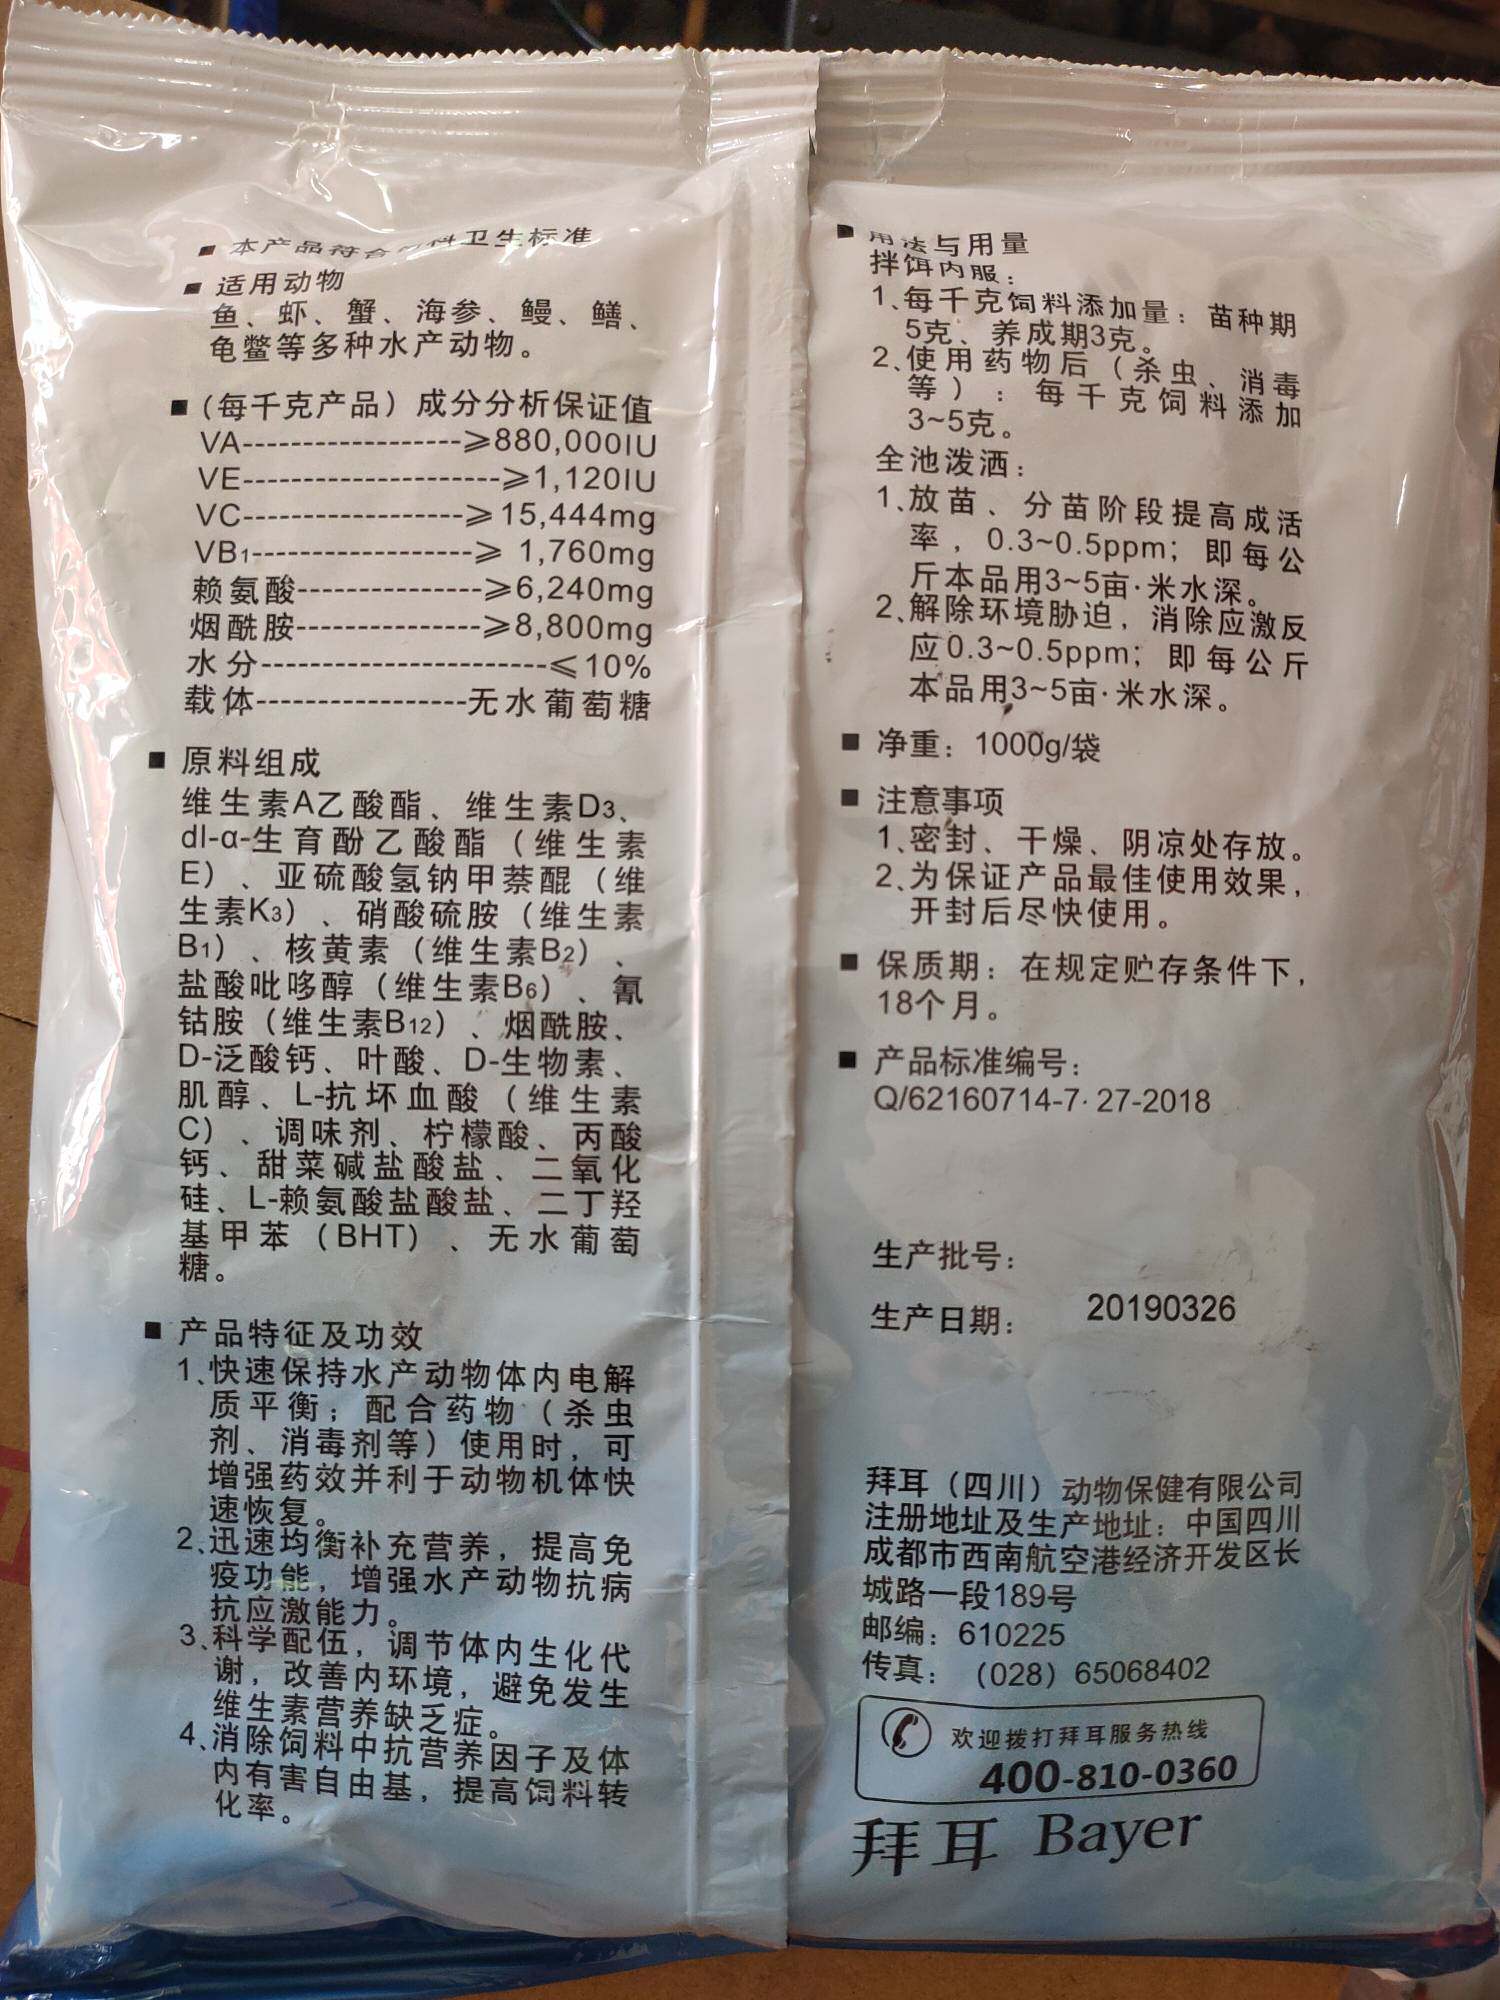 ■ 本产品符合饲料卫生标准
■ 适用动物
鱼、虾、蟹、海参、鳗、鳝、
龟鳖等多种水产动物。
■ (每千克产品) 成分分析保证值
VA------------------≥880,000IU
VE---------------------≥1,120IU
VC------------------≥15,444mg
VB1------------------≥ 1,760mg
赖氨酸---------------≥6,240mg
烟酰胺---------------≥8,800mg
水分-----------------------≤10%
载体-----------------无水葡萄糖
■ 原料组成
维生素A乙酸酯、维生素D3、
dl-α-生育酚乙酸酯（维生素
E）、亚硫酸氢钠甲萘醌（维
生素K3）、硝酸硫胺（维生素
B1）、核黄素（维生素B2）、
盐酸吡哆醇（维生素B6）、氰
钴胺（维生素B12）、烟酰胺、
D-泛酸钙、叶酸、D-生物素、
肌醇、L-抗坏血酸（维生素
C）、调味剂、柠檬酸、丙酸
钙、甜菜碱盐酸盐、二氧化
硅、L-赖氨酸盐酸盐、二丁羟
基甲苯（BHT）、无水葡萄
糖。
■ 产品特征及功效
1、快速保持水产动物体内电解
质平衡；配合药物（杀虫
剂、消毒剂等）使用时，可
增强药效并利于动物机体快
速恢复。
2、迅速均衡补充营养，提高免
疫功能，增强水产动物抗病
抗应激能力。
3、科学配伍，调节体内生化代
谢，改善内环境，避免发生
维生素营养缺乏症。
4、消除饲料中抗营养因子及体
内有害自由基，提高饲料转
化率。
■ 用法与用量
拌饵内服：
1、每千克饲料添加量：苗种期
5克、养成期3克。
2、使用药物后（杀虫、消毒
等）：每千克饲料添加
3~5克。
全池泼洒：
1、放苗、分苗阶段提高成活
率，0.3~0.5ppm；即每公
斤本品用3~5亩·米水深。
2、解除环境胁迫，消除应激反
应0.3~0.5ppm；即每公斤
本品用3~5亩·米水深。
■ 净重：1000g/袋
■ 注意事项
1、密封、干燥、阴凉处存放。
2、为保证产品最佳使用效果，
开封后尽快使用。
■ 保质期：在规定贮存条件下，
18个月。
■ 产品标准编号：
Q/62160714-7·27-2018
生产批号：
生产日期： 20190326
拜耳（四川）动物保健有限公司
注册地址及生产地址：中国四川
成都市西南航空港经济开发区长
城路一段189号
邮编：610225
传真：（028）65068402
欢迎拨打拜耳服务热线
400-810-0360
拜耳 Bayer